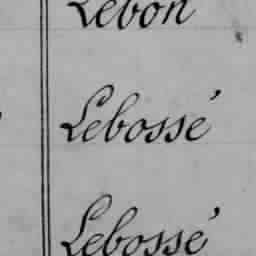 Lebon
Lebossé
Lebossé